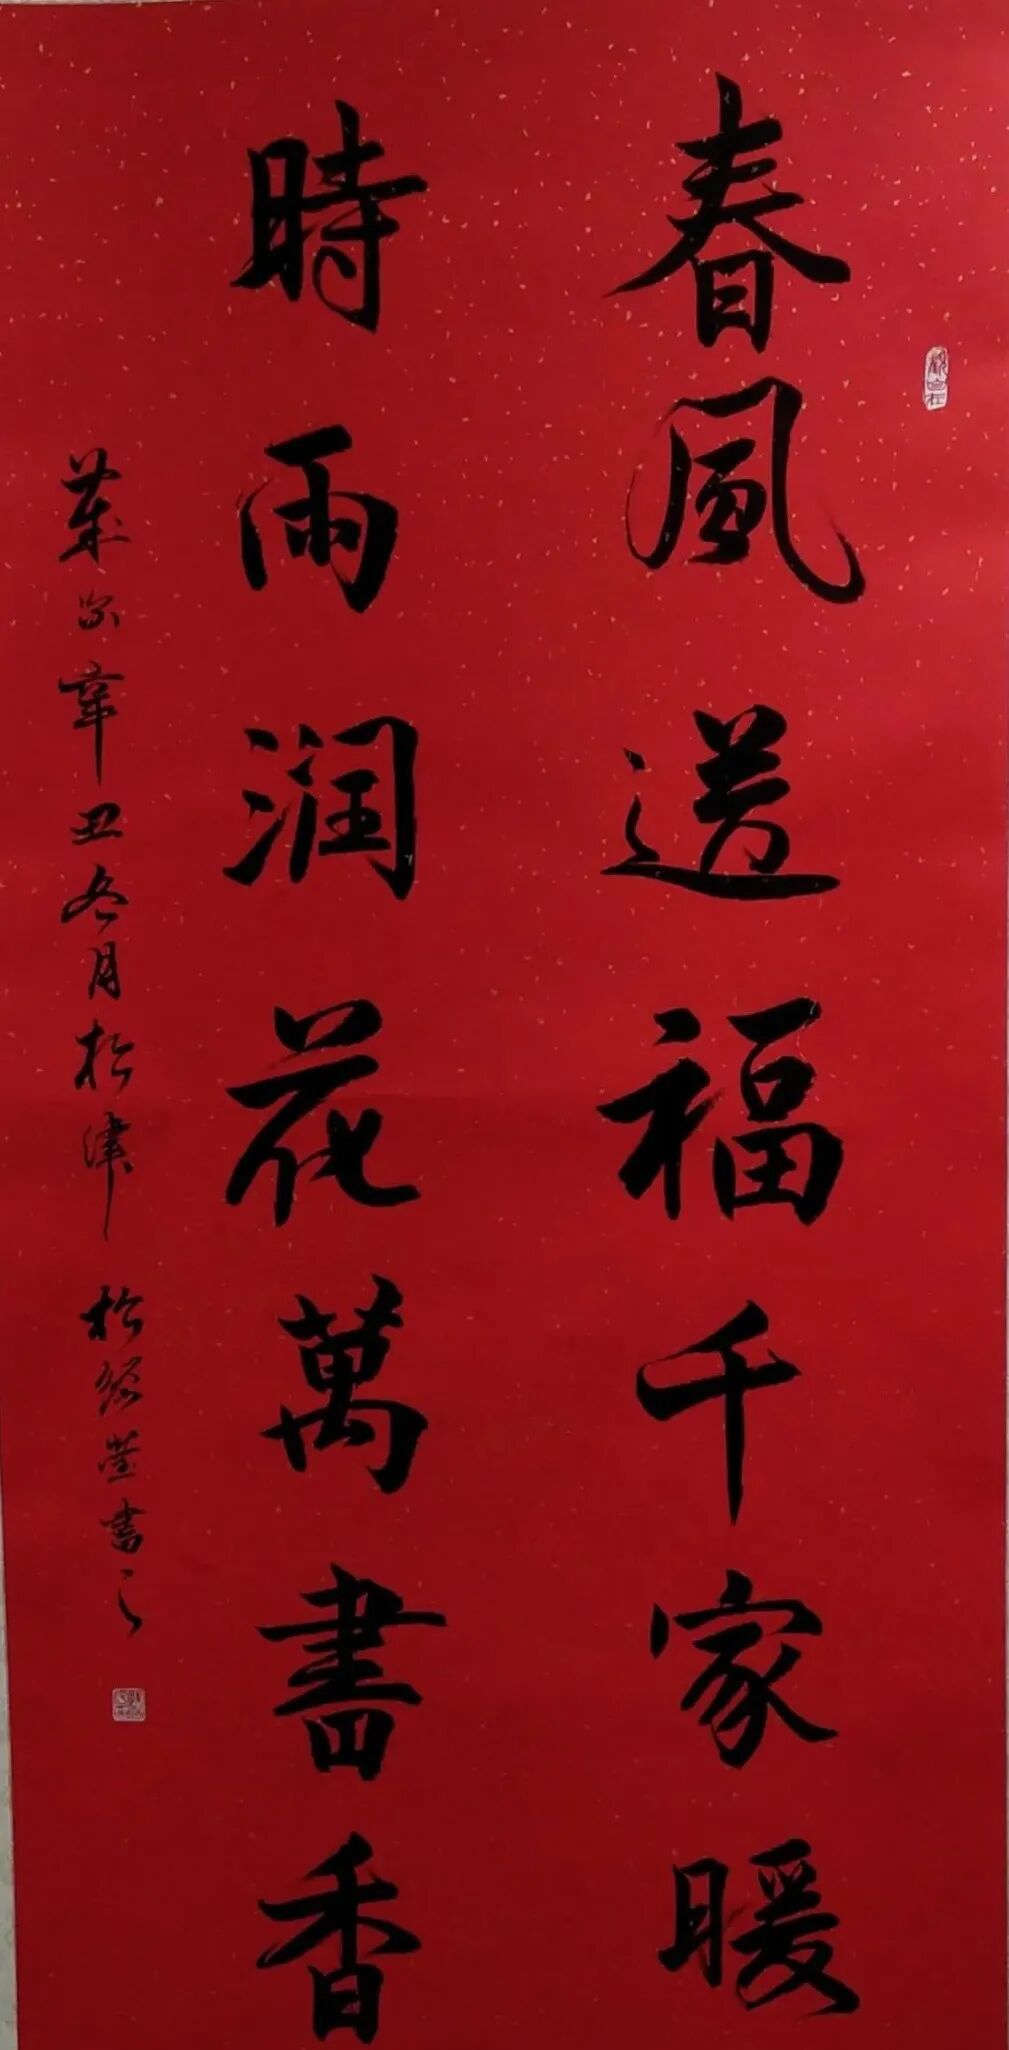 春風送福千家暖
時雨润花萬書香
歲次辛丑冬月於津 書之